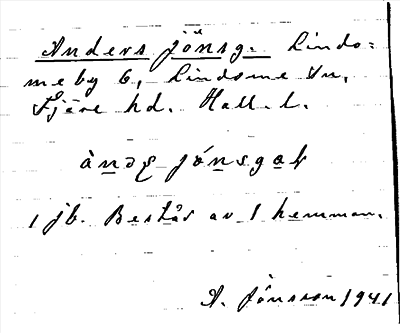 Anders jönsg. Lindo=
meby 6, Lindome sn,
Fjäre hd. Hall. l.
1 jb. Består av 1 hemman.
A. Jönsson 1941